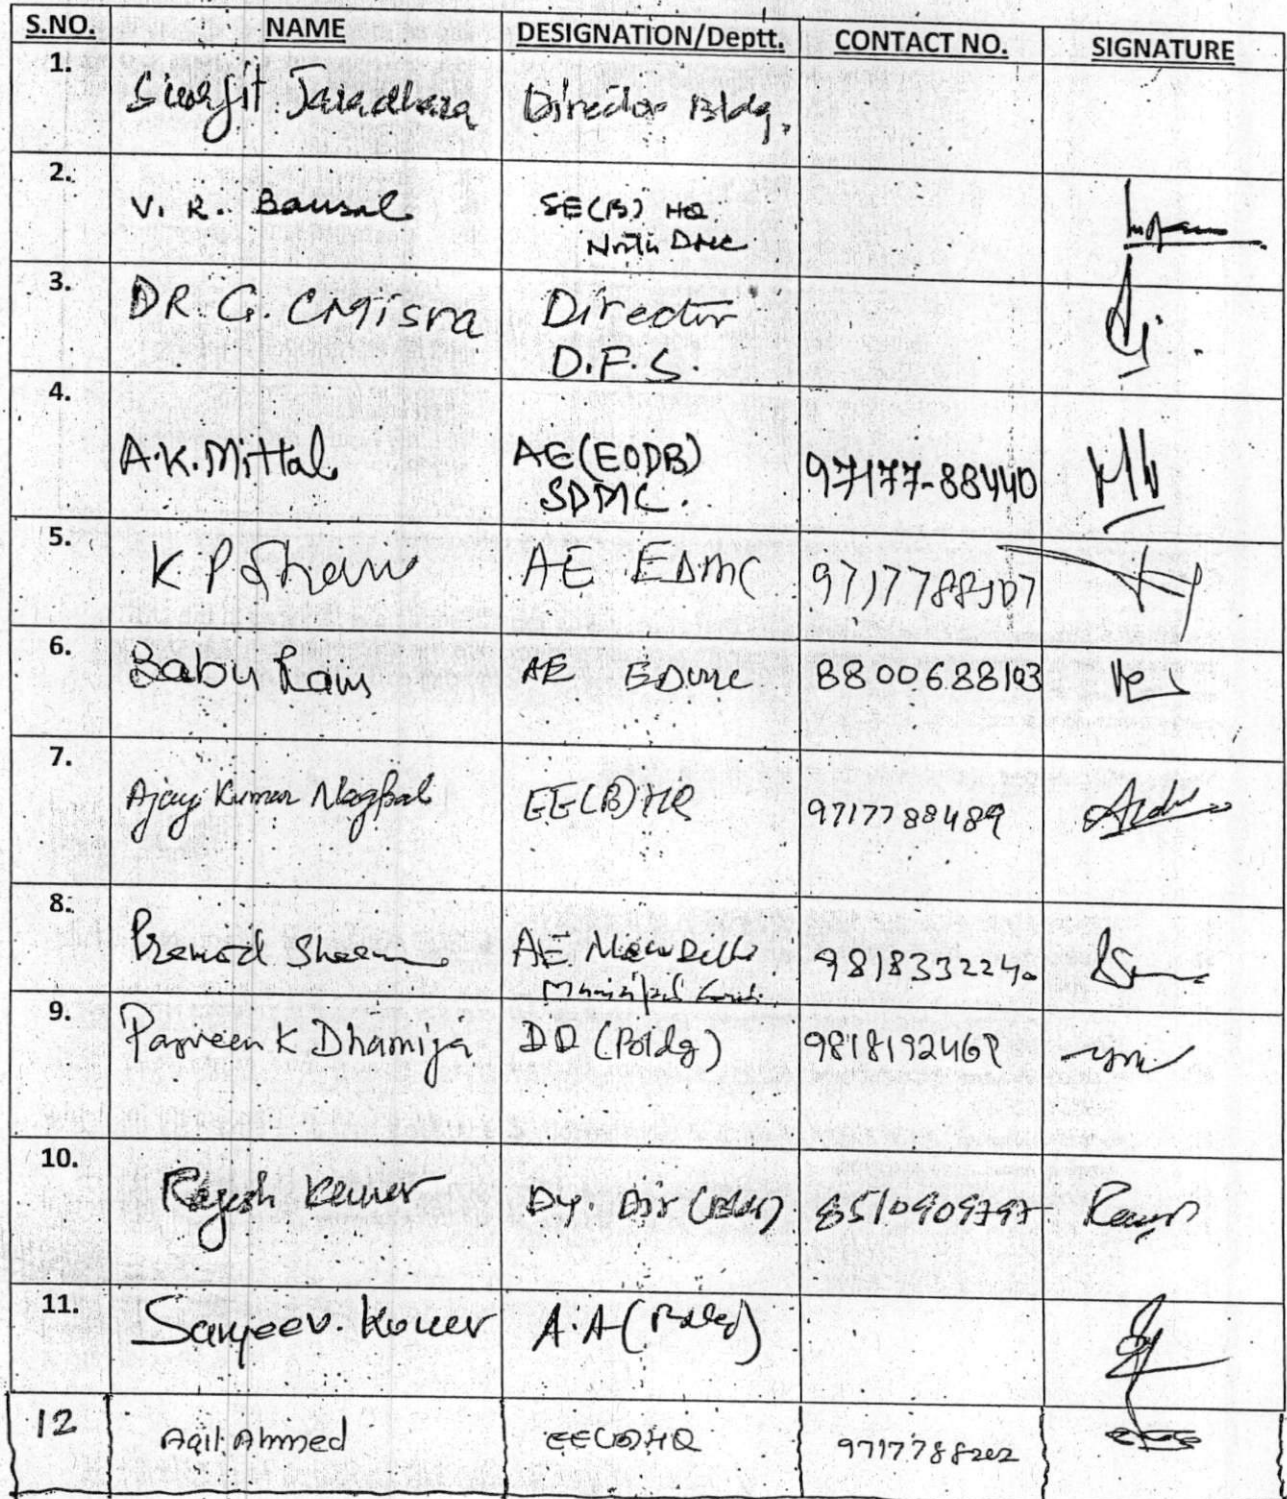 S.NO. NAME DESIGNATION/Deptt. CONTACT NO. SIGNATURE
1. Surjit Jaradhara Director Bldg.
2. V. R. Bansal SE(B) HQ
North DMC
3. DR. G. C Misra Director
D.F.S.
4. A.K. Mittal AE(EODB) 97177-88440
SDMC.
5. K P AE EDMC
6. Babu Ram AE EDMC 8800688103
7. Ajay Kumar Nagpal EE(B)HQ 9717788489
8. Pramod Sharma AE New Delhi 9818332240
Municipal
9. Parveen K Dhamija DD (Bldg)
10. Rajesh Kumar Dy. Dir (Bldg) 8510909797
11. Sanjeev. Kumar A.A (Bldg)
12 Aqil Ahmed EE(B)HQ 9717788202